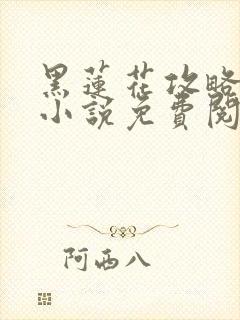 黑蓮花攻略
小說免費閱
阿西八